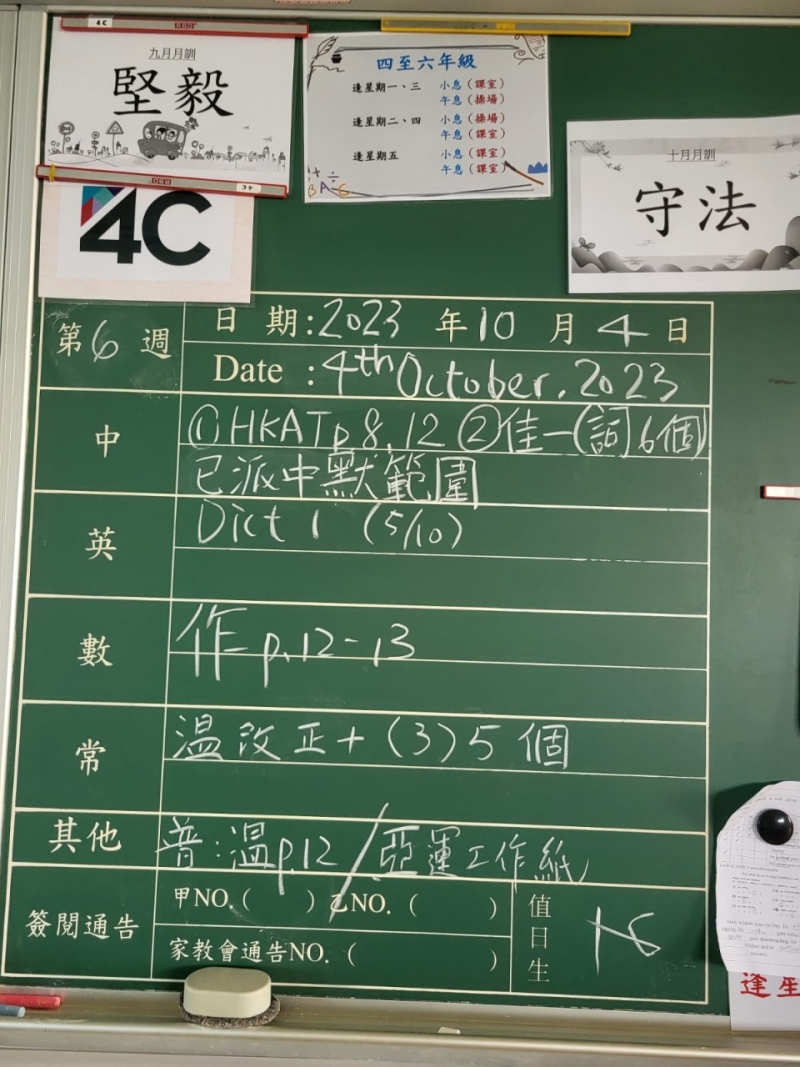 4C
九月月訓
堅毅
四至六年級
逢星期一、三 小息（課室）
午息（操場）
逢星期二、四 小息（操場）
午息（課室）
逢星期五 小息（課室）
午息（課室）
十月月訓
守法
4C
第6週
日期:2023年10月4日
Date :4th October.2023
中
①HKAT p 8,12 ②佳一(詞6個)
已派中默範圍
英
Dict 1 (5/10)
數
作 p.12-13
常
温改正+(3)5個
其他
普:温p.12/亞運工作紙
簽閱通告
甲NO.( ) 乙NO.( )
家教會通告NO.( )
值日生
逢星